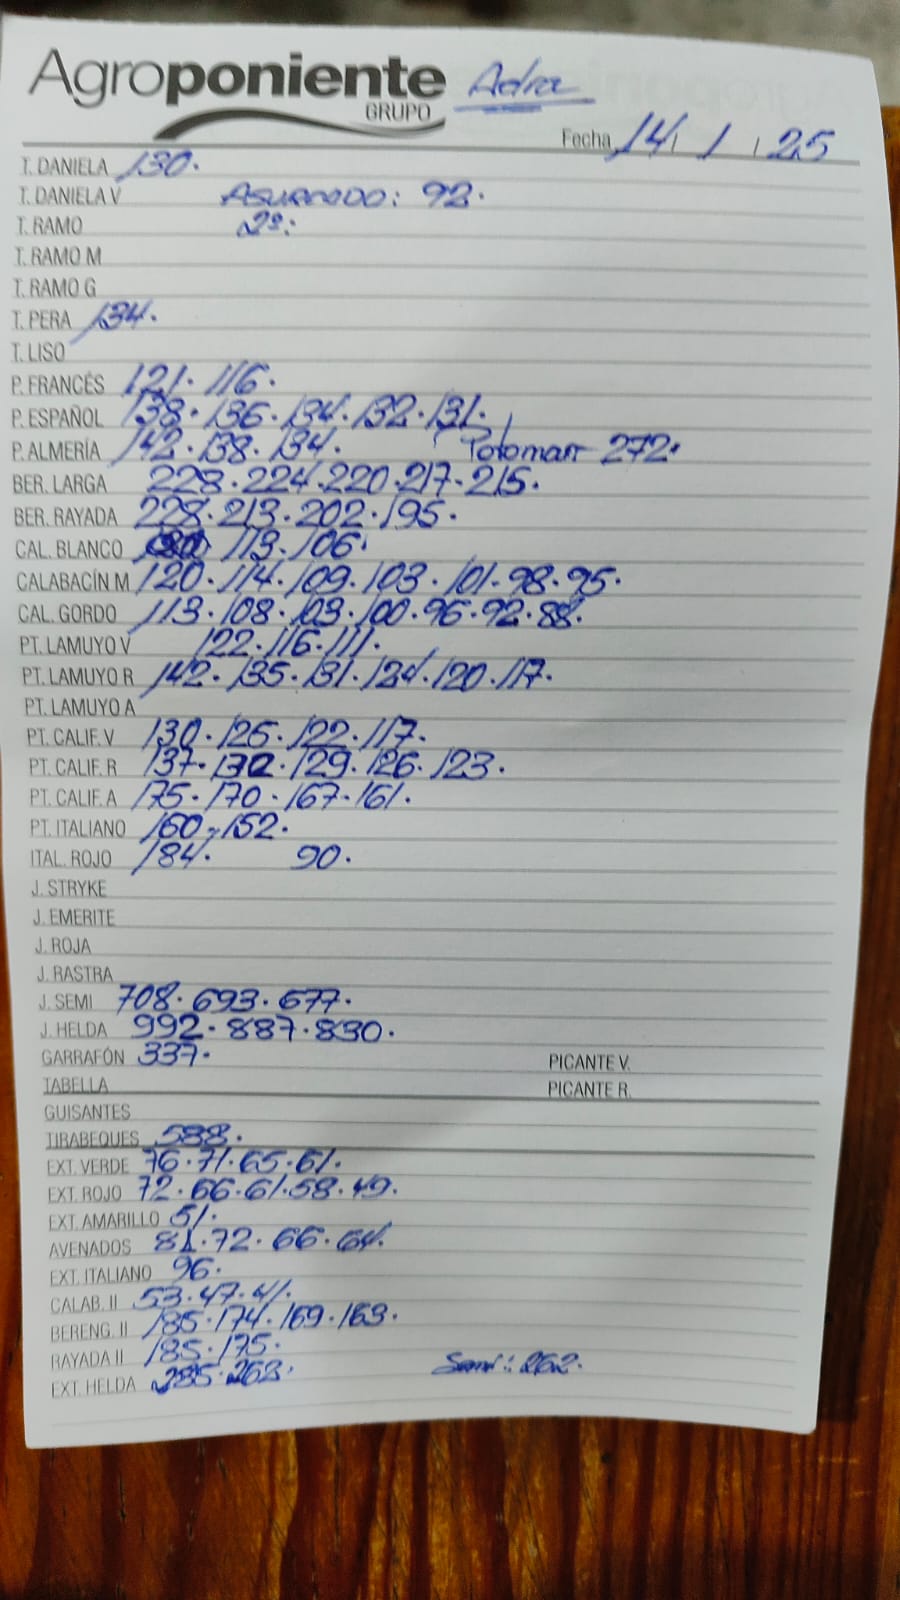 Agroponiente Adra
GRUPO
Fecha 14 / 1 / 25
T. DANIELA 130.
T. DANELA V Asurcado: 92.
T. RAMO 2º:
T. RAMO M
T. RAMO G
T. PERA 134.
T. LISO
P. FRANCÉS 121. 116.
P. ESPAÑOL 138. 136. 134. 132. 131.
P. ALMERÍA 142. 138. 134. 272.
BER. LARGA 228. 224. 220. 217. 215.
BER. RAYADA 228. 213. 202. 195.
CAL. BLANCO 113. 106.
CALABACÍN M 120. 114. 109. 103. 101. 98. 95.
CAL. GORDO 113. 108. 103. 100. 96. 92. 88.
PT. LAMUYO V 122. 116. 111.
PT. LAMUYO R 142. 135. 131. 124. 120. 117.
PT. LAMUYO A
PT. CALIF. V 130. 126. 122. 117.
PT. CALIF. R 137. 132. 129. 126. 123.
PT. CALIF. A 175. 170. 167. 161.
PT. ITALIANO 160. 152.
ITAL. ROJO 184. 90.
J. STRYKE
J. EMERITE
J. ROJA
J. RASTRA
J. SEMI 708. 693. 677.
J. HELDA 992. 887. 830.
GARRAFÓN 337. PICANTE V.
TABELLA PICANTE R.
GUISANTES
TIRABEQUES 588.
EXT. VERDE 76. 71. 65. 61.
EXT. ROJO 72. 66. 61. 58. 49.
EXT. AMARILLO 51.
AVENADOS 81. 72. 66. 64.
EXT. ITALIANO 96.
CALAB. II 53. 47. 41.
BERENG. II 185. 174. 169. 163.
RAYADA II 185. 175.
EXT. HELDA 285. 263. Semi: 262.